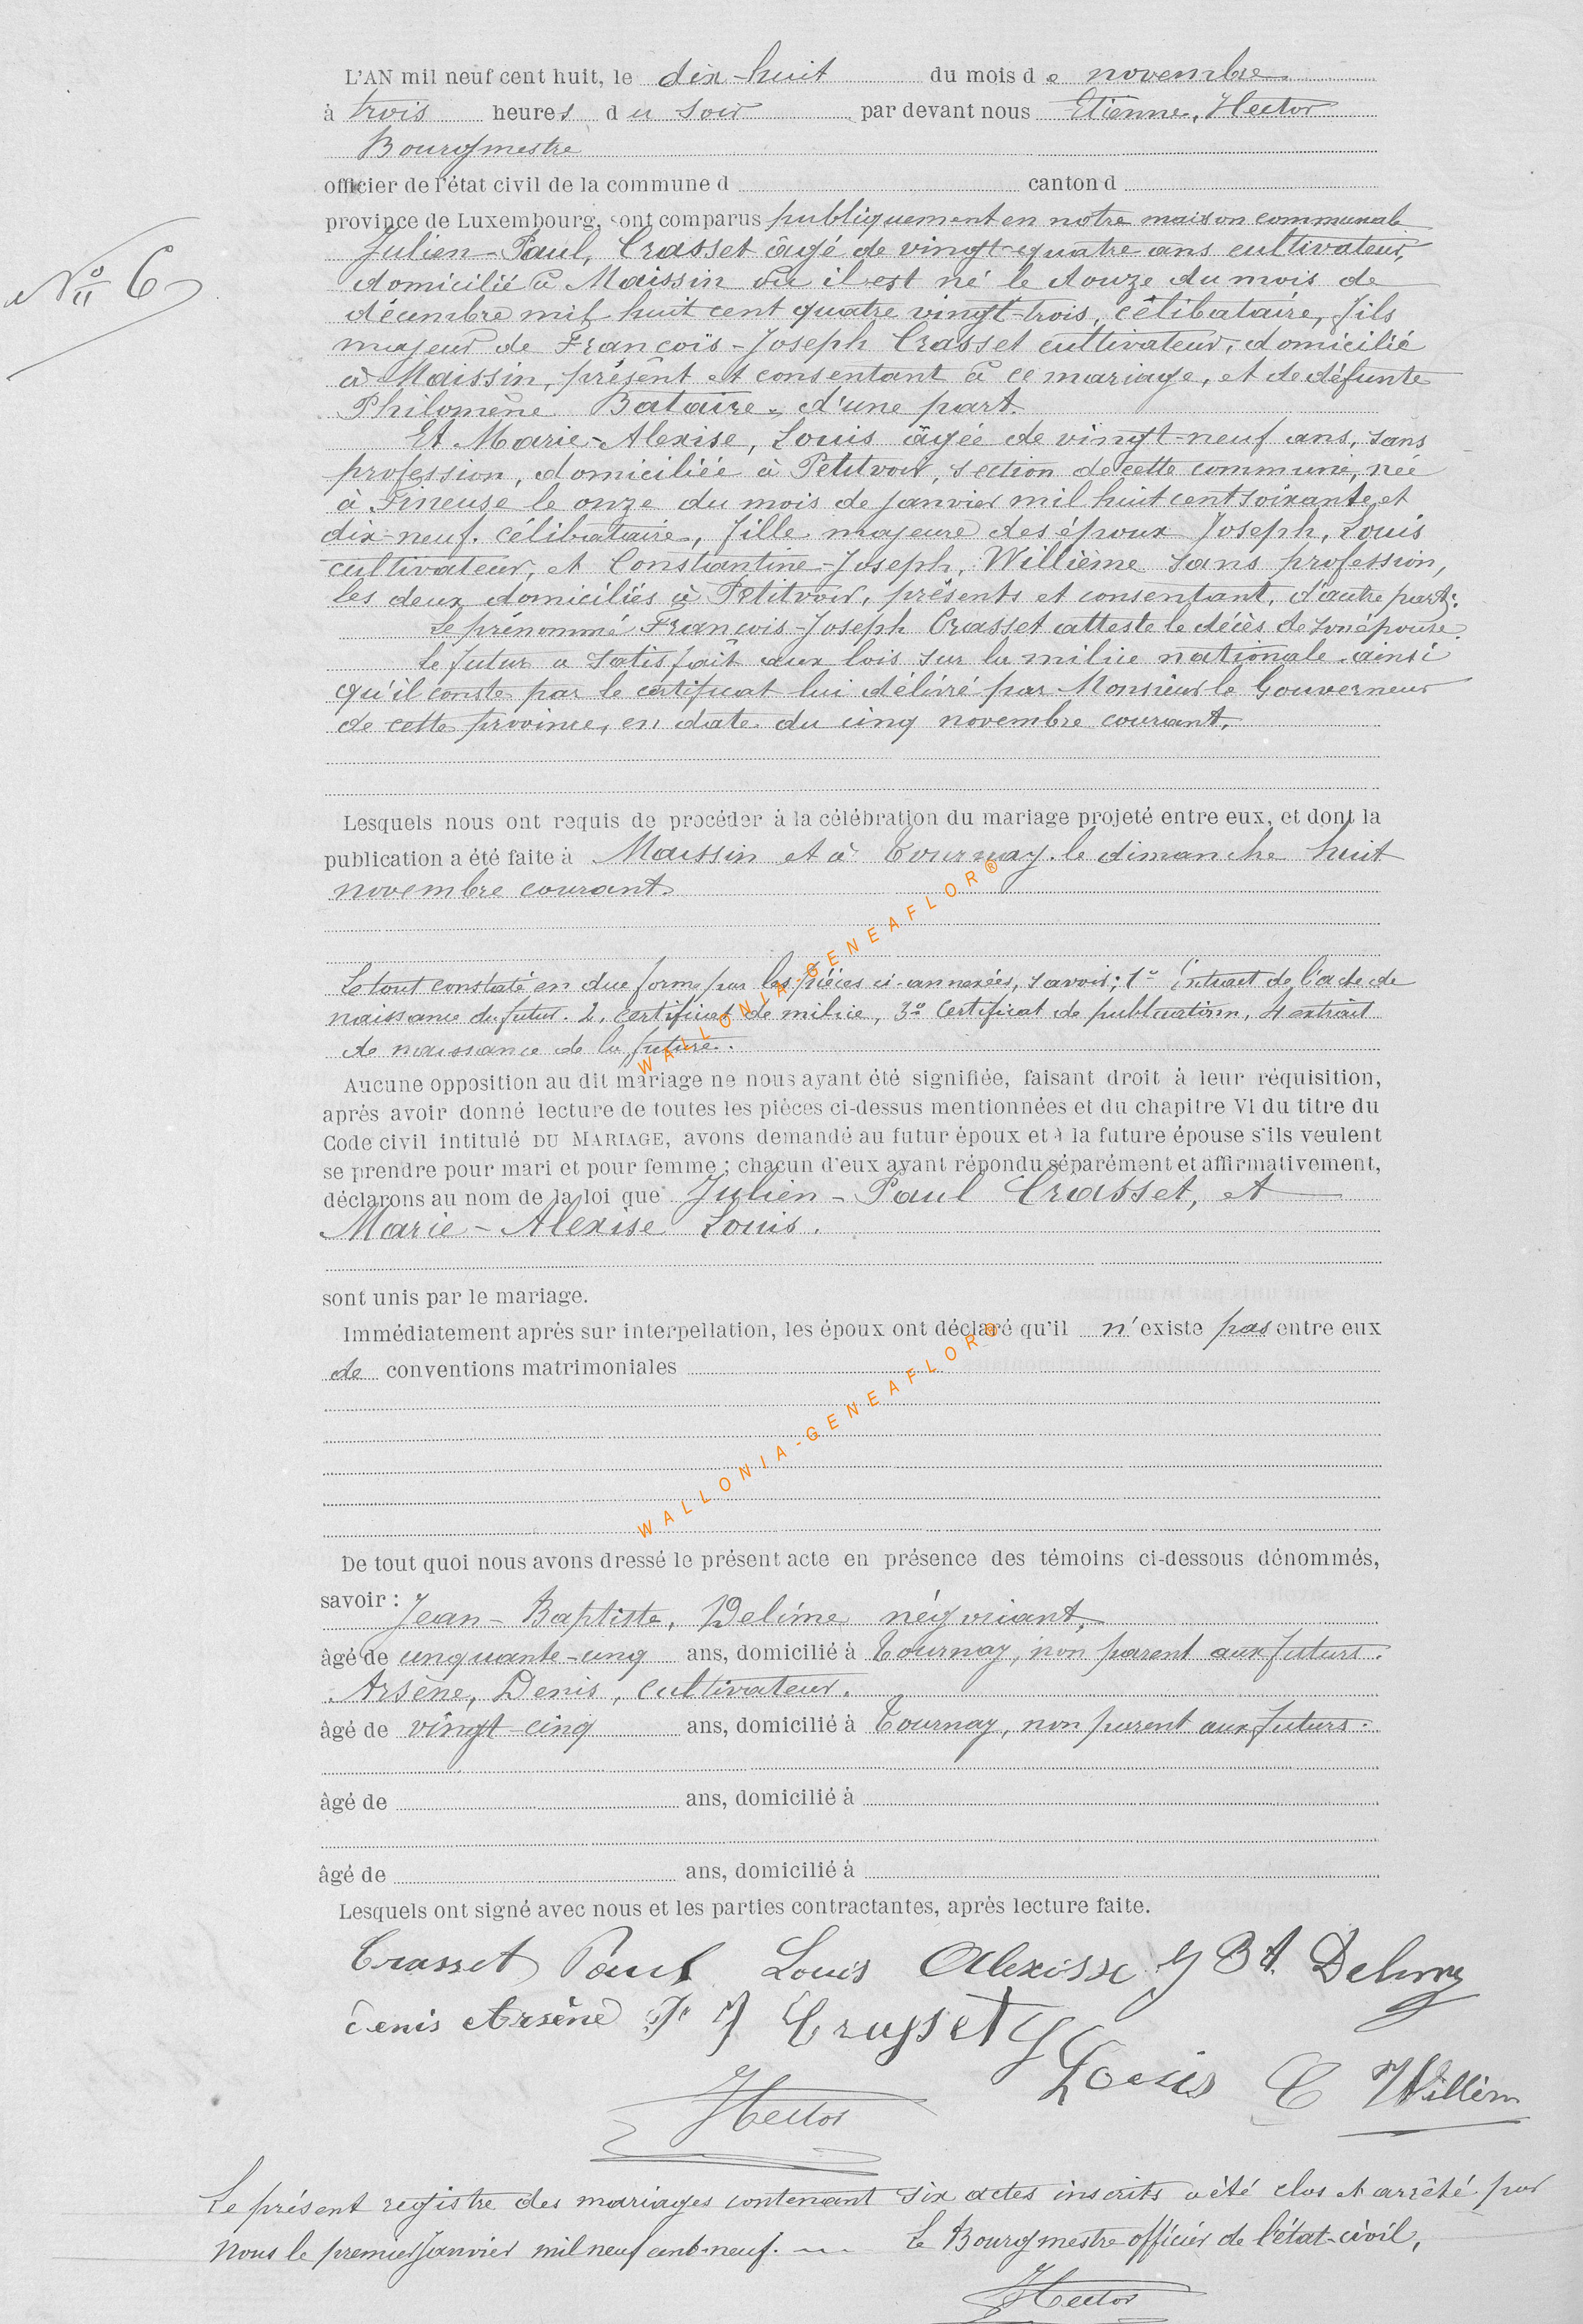 L'AN mil neuf cent huit, le dix-huit du mois de novembre
à trois heures du soir par devant nous Etienne, Hector
Bourgmestre
officier de l'état civil de la commune d canton d
province de Luxembourg, sont comparus publiquement en notre maison communale
Julien-Paul, Crasset âgé de vingt-quatre ans cultivateur,
domicilié à Maissin où il est né le douze du mois de
décembre mil huit cent quatre vingt-trois, célibataire, fils
majeur de François-Joseph Crasset cultivateur, domicilié
à Maissin, présent et consentant à ce mariage, et de défunte
Philomène Bataire, d'une part.
Et Marie-Alexise, Louis âgée de vingt-neuf ans, sans
profession, domiciliée à Petitvoir, section de cette commune, née
à Fineuse le onze du mois de janvier mil huit cent soixante et
dix-neuf. célibataire, fille majeure des époux Joseph, Louis
cultivateur, et Constantine-Joseph, Willième sans profession,
les deux domiciliés à Petitvoir, présents et consentant, d'autre part.
Le prénommé François-Joseph Crasset atteste le décès de son épouse.
Le futur a satisfait aux lois sur la milice nationale ainsi
qu'il conste par le certificat lui délivré par Monsieur le Gouverneur
de cette province, en date du cinq novembre courant.
Lesquels nous ont requis de procéder à la célébration du mariage projeté entre eux, et dont la
publication a été faite à Maissin et à Tournay. le dimanche huit
novembre courant.
Le tout constaté en due forme par les pièces ci-annexées, savoir; 1º Extrait de l'acte de
naissance du futur. 2. Certificat de milice, 3º Certificat de publication, 4 extrait
de naissance de la future.
Aucune opposition au dit mariage ne nous ayant été signifiée, faisant droit à leur réquisition,
après avoir donné lecture de toutes les pièces ci-dessus mentionnées et du chapitre VI du titre du
Code civil intitulé DU MARIAGE, avons demandé au futur époux et à la future épouse s'ils veulent
se prendre pour mari et pour femme ; chacun d'eux ayant répondu séparément et affirmativement,
déclarons au nom de la loi que Julien-Paul Crasset, et
Marie-Alexise Louis.
sont unis par le mariage.
Immédiatement après sur interpellation, les époux ont déclaré qu'il n'existe pas entre eux
de conventions matrimoniales
De tout quoi nous avons dressé le présent acte en présence des témoins ci-dessous dénommés,
savoir : Jean-Baptiste, Delime négociant,
âgé de cinquante-cinq ans, domicilié à Tournay, non parent aux futurs.
Arsène, Denis, cultivateur.
âgé de vingt-cinq ans, domicilié à Tournay, non parent aux futurs.
âgé de ans, domicilié à
âgé de ans, domicilié à
Lesquels ont signé avec nous et les parties contractantes, après lecture faite.
Crasset Paul Louis Alexisse J Bt Delime
Denis Arsène Fr J Crasset J
Louis C Willèm
Hector
Le présent registre des mariages contenant six actes inscrits a été clos et arrêté par
Nous le premier Janvier mil neuf cent-neuf. Le Bourgmestre officier de l'état-civil,
Hector
Nº 6
WALLONIA-GENEAFLOR®
WALLONIA-GENEAFLOR®